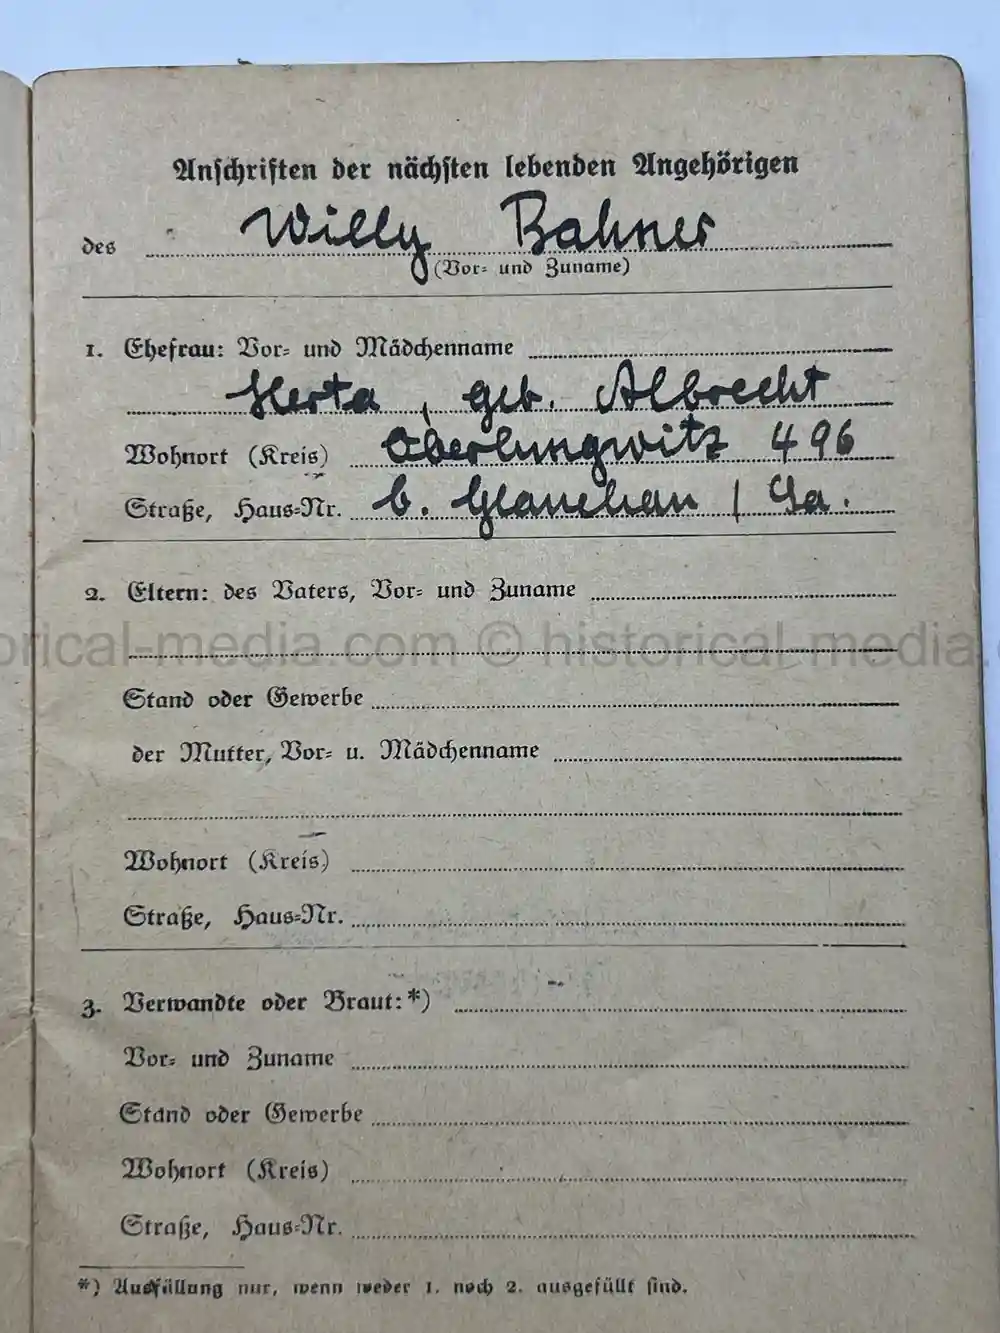 Anschriften der nächsten lebenden Angehörigen
des Willy Bahner
(Vor- und Zuname)
1. Ehefrau: Vor- und Mädchenname
Herta, geb. Albrecht
Wohnort (Kreis) Oberlungwitz 496
Straße, Haus-Nr. b. Glauchau / Sa.
2. Eltern: des Vaters, Vor- und Zuname
orical-media.com © historical-media.
Stand oder Gewerbe
der Mutter, Vor- u. Mädchenname
Wohnort (Kreis)
Straße, Haus-Nr.
3. Verwandte oder Braut:*)
Vor- und Zuname
Stand oder Gewerbe
Wohnort (Kreis)
Straße, Haus-Nr.
*) Ausfüllung nur, wenn weder 1. noch 2. ausgefüllt sind.